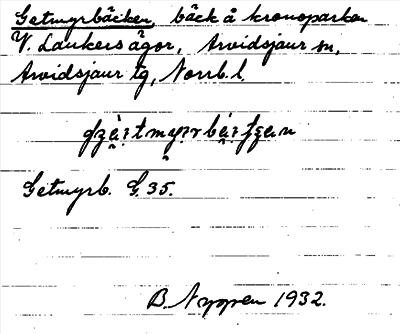 Getmyrbäcken, bäck å kronoparken
V. Laukers ägor, Arvidsjaur sn,
Arvidsjaur tg, Norrb. l.
Getmyrb. G. 35.
B. Nygren 1932.